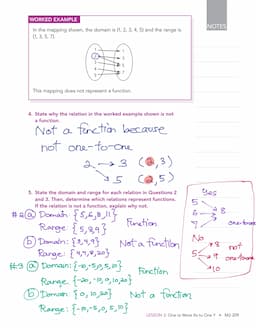 WORKED EXAMPLE
In the mapping shown, the domain is {1, 2, 3, 4, 5} and the range is
{1, 3, 5, 7}.
This mapping does not represent a function.
NOTES
4. State why the relation in the worked example shown is not
a function.
Not a function because
not one-to-one
2 → 3 (2,3)
→ 5 (2,5)
5. State the domain and range for each relation in Questions 2
and 3. Then, determine which relations represent functions.
If the relation is not a function, explain why not.
#2 (a) Domain: {5,6,8,11}
Range: {5,8,9}
Function
(b) Domain: {3,4,9}
Range: {4,7,8,20}
Not a function
#3 (a) Domain: {-10,-5,0,5,10}
Range: {-20,-10,0,10,20}
Function
(b) Domain: {0,10,20}
Range: {-10,-5,0,5,10}
Not a function
Yes
5
6 → 8
7
No
5 → 8
→ 9
→ 10
not
one-to-one